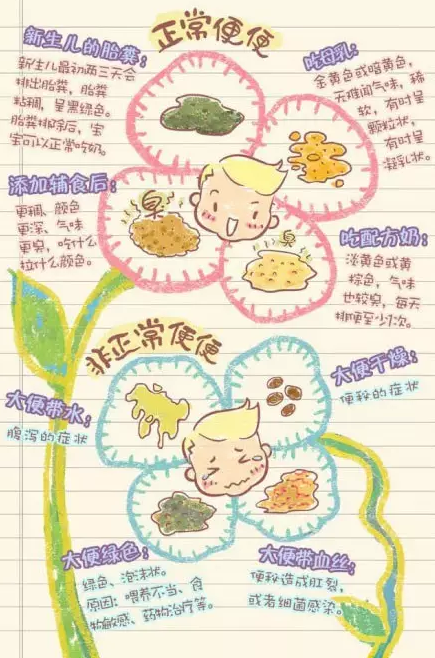 正常便便
新生儿的胎粪：
新生儿最初两三天会
排出胎粪，胎粪
粘稠，呈黑绿色。
胎粪排除后，宝
宝可以正常吃奶。
吃母乳：
金黄色或暗黄色，
无难闻气味，稀
软，有时呈
颗粒状，
有时呈
凝乳状。
添加辅食后：
更稠、颜色
更深、气味
更臭，吃什么
拉什么颜色。
臭
臭
吃配方奶：
淡黄色或黄
棕色，气味
也较臭，每天
排便至少1次。
非正常便便
大便带水：
腹泻的症状
大便干燥：
便秘的症状
大便绿色：
绿色、泡沫状。
原因：喂养不当、食
物敏感、药物治疗等。
大便带血丝：
便秘造成肛裂，
或者细菌感染。